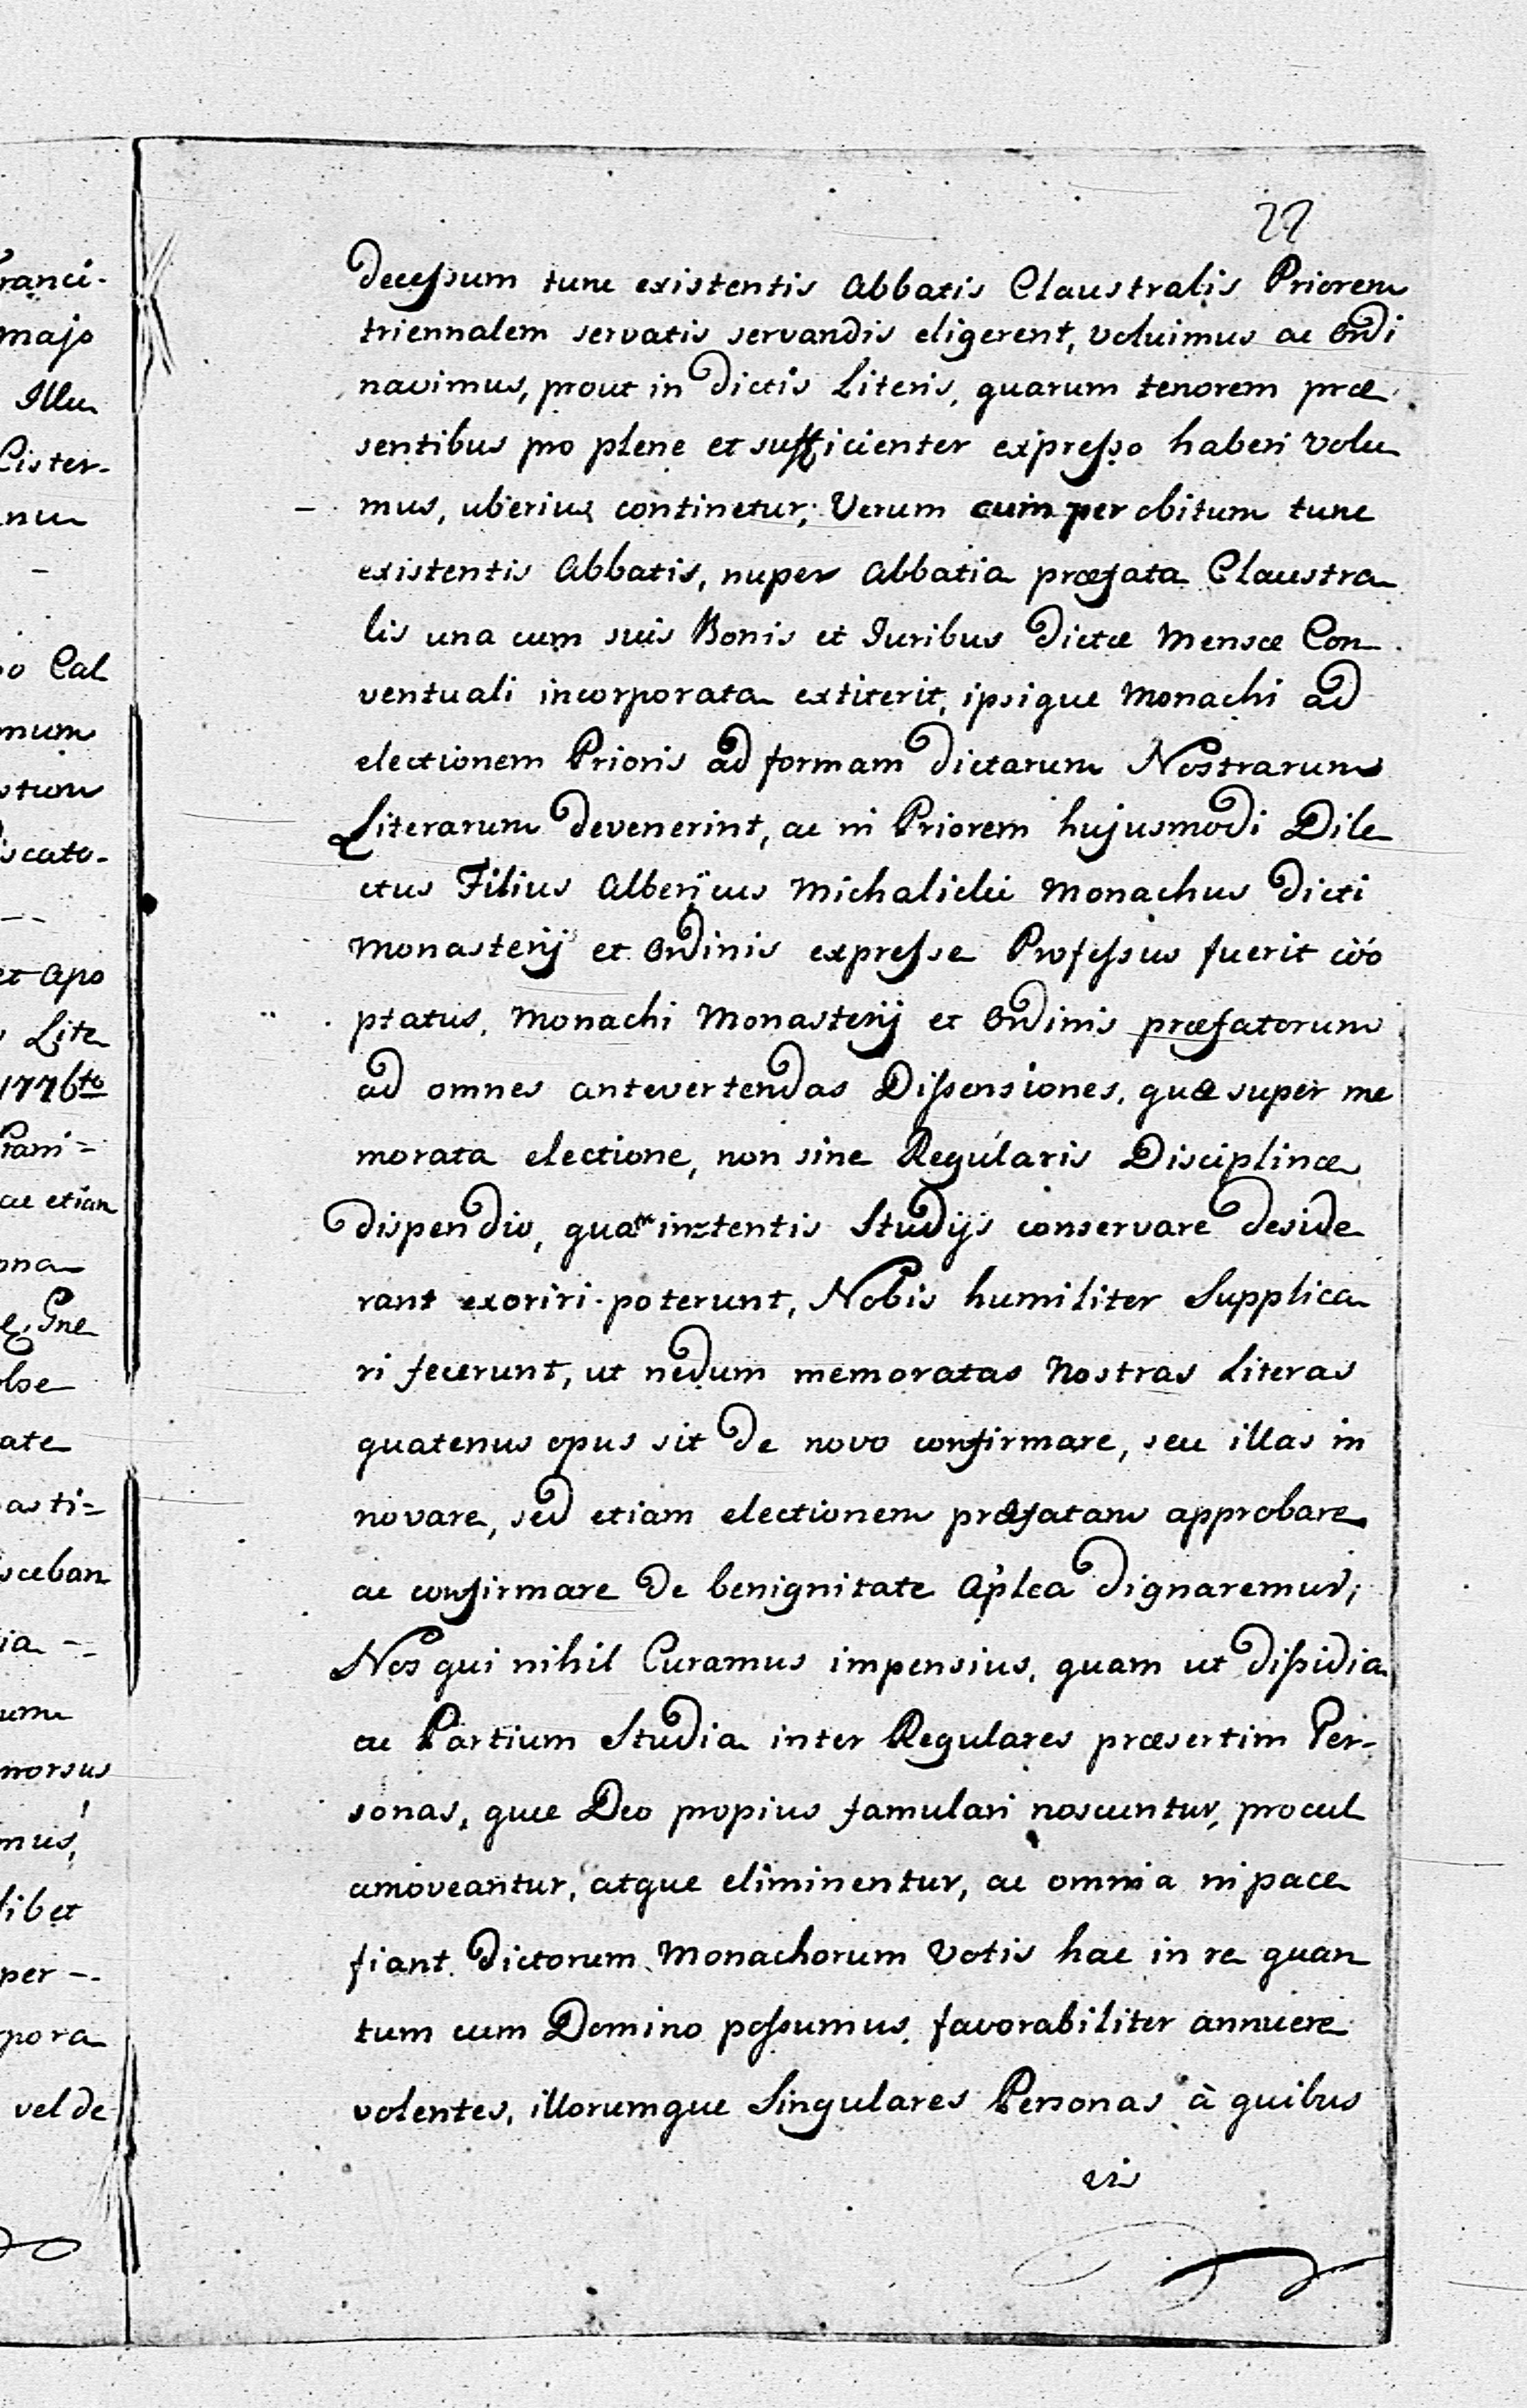 22
decessum tunc existentis Abbatis Claustralis Priorem
triennalem servatis servandis eligerent, voluimus ac Ordi
navimus, prout in dictis Literis, quarum tenorem præ
sentibus pro plene et sufficienter expresso haberi volu
mus, uberius continetur; Verum cum per obitum tunc
existentis Abbatis, nuper Abbatia præfata Claustra
lis una cum suis Bonis et Juribus dictæ Mensæ Con
ventuali incorporata extiterit, ipsique Monachi ad
electionem Prioris ad formam dictarum Nostrarum
Literarum devenerint, ac in Priorem hujusmodi Dile
ctus Filius Albericus Michalicki Monachus dicti
Monasterij et Ordinis expresse Professus fuerit coo
ptatus, Monachi Monasterij et Ordinis præfatorum
ad omnes antevertendas Dissensiones, quæ super me
morata electione, non sine Regularis Disciplinæ
dispendio, quam intentis Studijs conservare deside
rant exoriri poterunt, Nobis humiliter Supplica
ri fecerunt, ut nedum memoratas Nostras Literas
quatenus opus sit de novo confirmare, seu illas in
novare, sed etiam electionem præfatam approbare
ac confirmare de benignitate Aplca dignaremur;
Nos qui nihil Curamus impensius, quam ut dissidia
ac Partium Studia inter Regulares præsertim Per-
sonas, quæ Deo propius famulari noscuntur, procul
amoveantur, atque eliminentur, ac omnia in pace
fiant dictorum Monachorum Votis hac in re quan
tum cum Domino possumus, favorabiliter annuere
volentes, illorumque Singulares Personas à quibus
vis
ranci-
majo
Illu
Cister-
nu
o Cal
mum
scato-
et Apo
Lite
1776to
ac etian
ona
ate
asti=
sceban
ia
um
morsus
mus,
libet
per -
pora
vel de